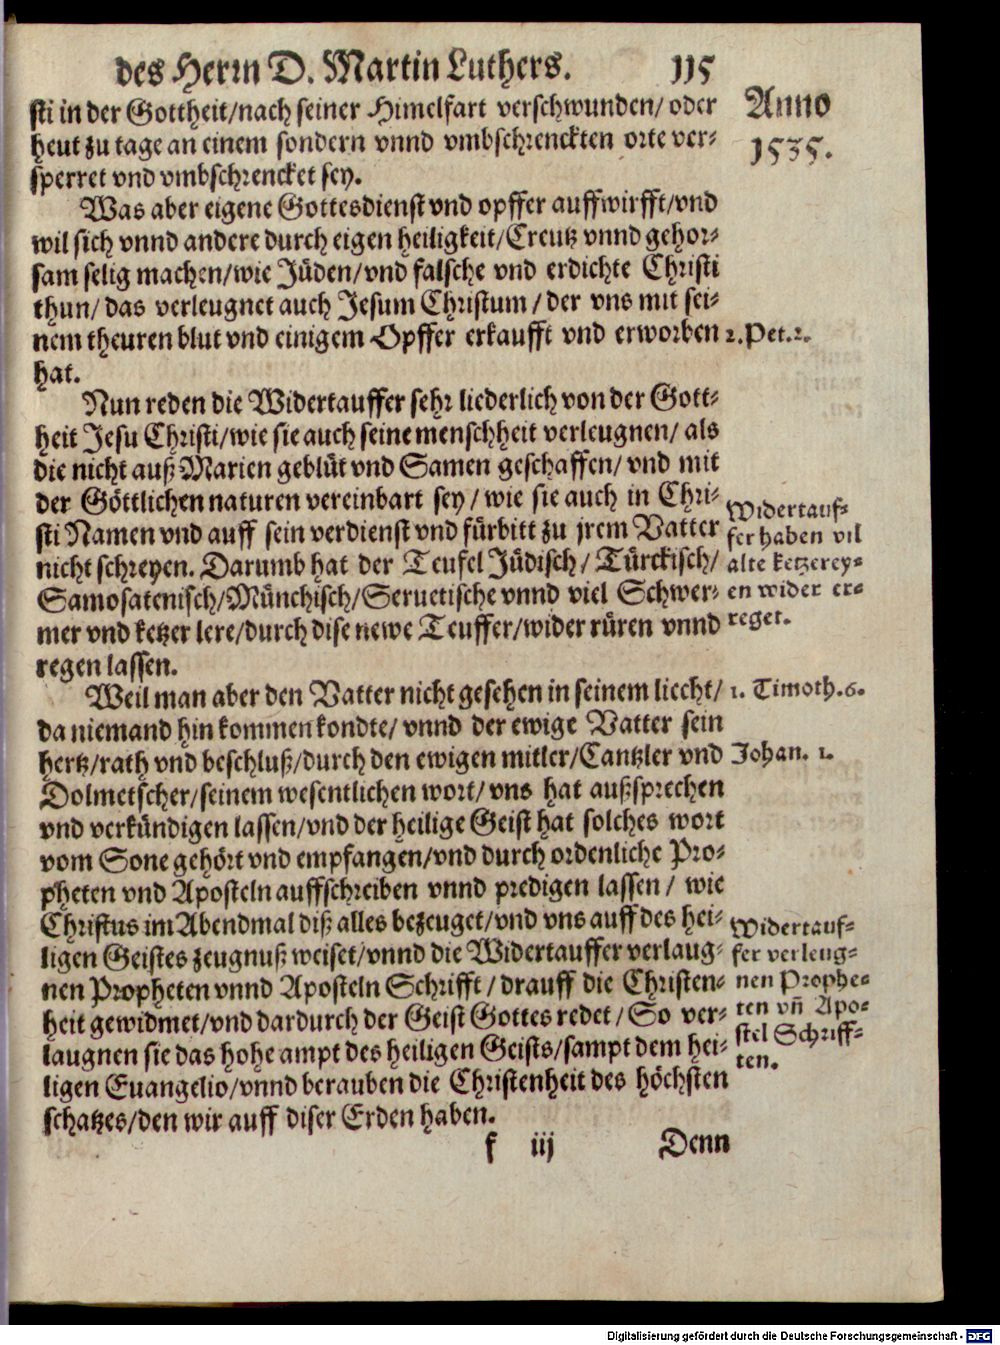 des Herrn D. Martin Luthers. 115
Anno
1535.
sti in der Gottheit/nach seiner Himelfart verschwunden/ oder
heut zu tage an einem sondern vnnd vmbschrenckten orte ver-
sperret vnd vmbschrencket sey.
Was aber eigene Gottesdienst vnd opffer auffwirfft/vnd
wil sich vnnd andere durch eigen heiligkeit/Creutz vnnd gehor-
sam selig machen/wie Jüden/vnd falsche vnd erdichte Christi
thun/ das verleugnet auch Jesum Christum/ der vns mit sei-
nem theuren blut vnd einigem Opffer erkaufft vnd erworben
hat.
2. Pet. 2.
Nun reden die Widertauffer sehr liederlich von der Gott-
heit Jesu Christi/wie sie auch seine menschheit verleugnen/ als
die nicht auß Marien geblüt vnd Samen geschaffen/ vnd mit
der Göttlichen naturen vereinbart sey/ wie sie auch in Chri-
sti Namen vnd auff sein verdienst vnd fürbitt zu jrem Vatter
nicht schreyen. Darumb hat der Teufel Jüdisch/ Türckisch/
Samosatenisch/Münchisch/Seruetische vnnd viel Schwer-
mer vnd ketzer lere/durch dise newe Teuffer/wider rüren vnnd
regen lassen.
Widertauf-
fer haben vil
alte ketzerey-
en wider er-
reget.
Weil man aber den Vatter nicht gesehen in seinem liecht/
da niemand hin kommen kondte/ vnnd der ewige Vatter sein
hertz/rath vnd beschluß/durch den ewigen mitler/Cantzler vnd
Dolmetscher/seinem wesentlichen wort/ vns hat außsprechen
vnd verkündigen lassen/vnd der heilige Geist hat solches wort
vom Sone gehört vnd empfangen/vnd durch ordenliche Pro-
pheten vnd Aposteln auffschreiben vnnd predigen lassen/ wie
Christus im Abendmal diß alles bezeuget/vnd vns auff des hei-
ligen Geistes zeugnuß weiset/vnnd die Widertauffer verlaug-
nen Propheten vnnd Aposteln Schrifft/ drauff die Christen-
heit gewidmet/vnd dardurch der Geist Gottes redet/ So ver-
laugnen sie das hohe ampt des heiligen Geists/sampt dem hei-
ligen Euangelio/vnnd berauben die Christenheit des höchsten
schatzes/den wir auff diser Erden haben.
1. Timoth. 6.
Johan. 1.
Widertauf-
fer verleug-
nen Prophe-
ten vn̄ Apo-
stel Schriff-
ten.
f iij Denn
Digitalisierung gefördert durch die Deutsche Forschungsgemeinschaft - DFG